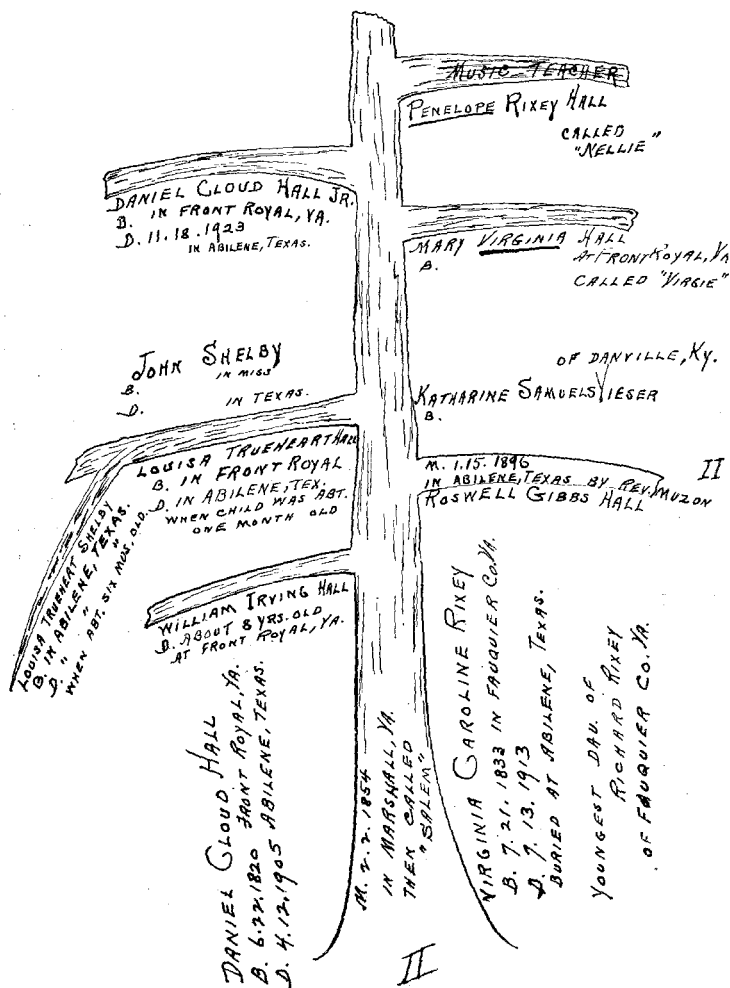 MUSIC TEACHER
PENELOPE RIXEY HALL
CALLED
"NELLIE"
DANIEL CLOUD HALL JR.
B. IN FRONT ROYAL, VA.
D. 11.18.1923
IN ABILENE, TEXAS.
MARY VIRGINIA HALL
B. AT FRONT ROYAL, VA
CALLED "VIRGIE"
JOHN SHELBY
B. IN MISS
D. IN TEXAS.
OF DANVILLE, KY.
KATHARINE SAMUELS VIESER
B.
LOUISA TRUEHEART HALL
B. IN FRONT ROYAL
D. IN ABILENE, TEX.
WHEN CHILD WAS ABT.
ONE MONTH OLD
M. 1.15.1896
IN ABILENE, TEXAS BY REV. MUZON
ROSWELL GIBBS HALL
II
LOUISA TRUEHERT SHELBY
B. IN ABILENE, TEXAS.
D. " " "
WHEN ABT. SIX MOS. OLD.
WILLIAM IRVING HALL
D. ABOUT 8 YRS. OLD
AT FRONT ROYAL, VA.
DANIEL CLOUD HALL
B. 6.22.1820 FRONT ROYAL, VA.
D. 4.12.1905 ABILENE, TEXAS.
M. 2.2.1854
IN MARSHALL, VA.
THEN CALLED
"SALEM"
VIRGINIA CAROLINE RIXEY
B. 7.21.1833 IN FAUQUIER CO. VA.
D. 7.13.1913
BURIED AT ABILENE, TEXAS.
YOUNGEST DAU. OF
RICHARD RIXEY
OF FAUQUIER CO. VA.
II